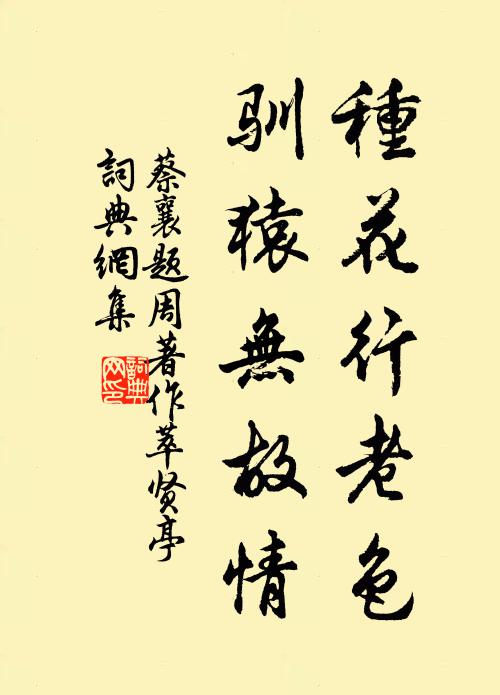 種花行老色
馴猿無故情
蔡襄題周著作萃贤亭
詞典網集
詞典网印